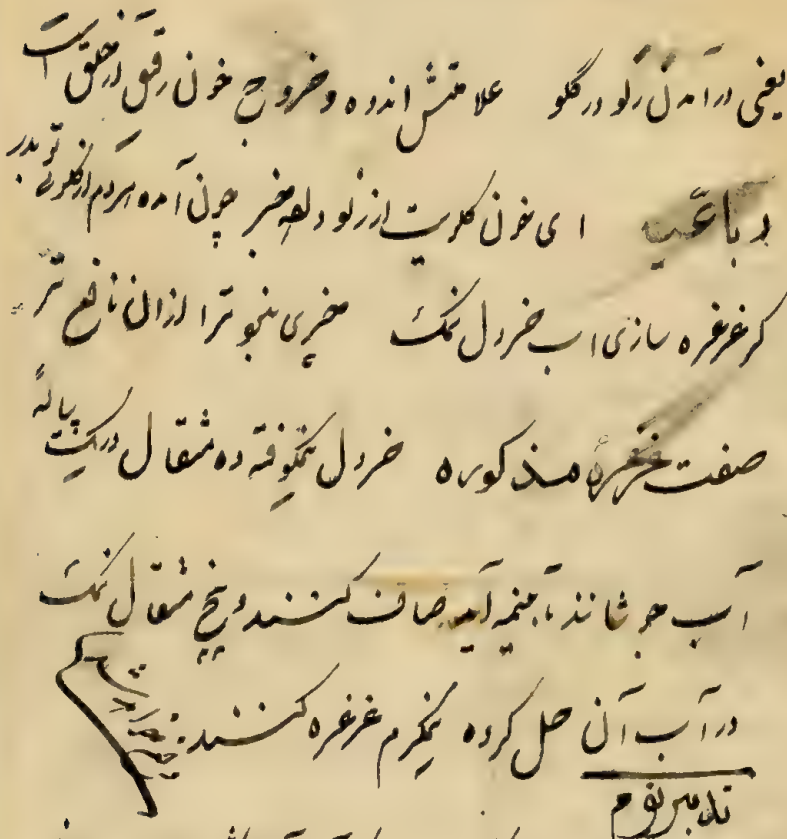 یعنی درآمدن زلو در گلو علامتش اندوه و خروج خون رقیق از حلق است
رباعیه ای خون گلویت از زلو داده خبر چون آمده هر دم از گلوی تو بدر
گر غرغره سازی اب خردل نمک چیزی نبود ترا ازان نافع تر
صفت غرغرهٔ مذکوره خردل نیکوفته ده مثقال در یک پیالهٔ
آب جوشانند تا بنیمه آید صاف کنند و پنج مثقال نمک
در آب آن حل کرده نیمگرم غرغره کنند
تدبیر نوم